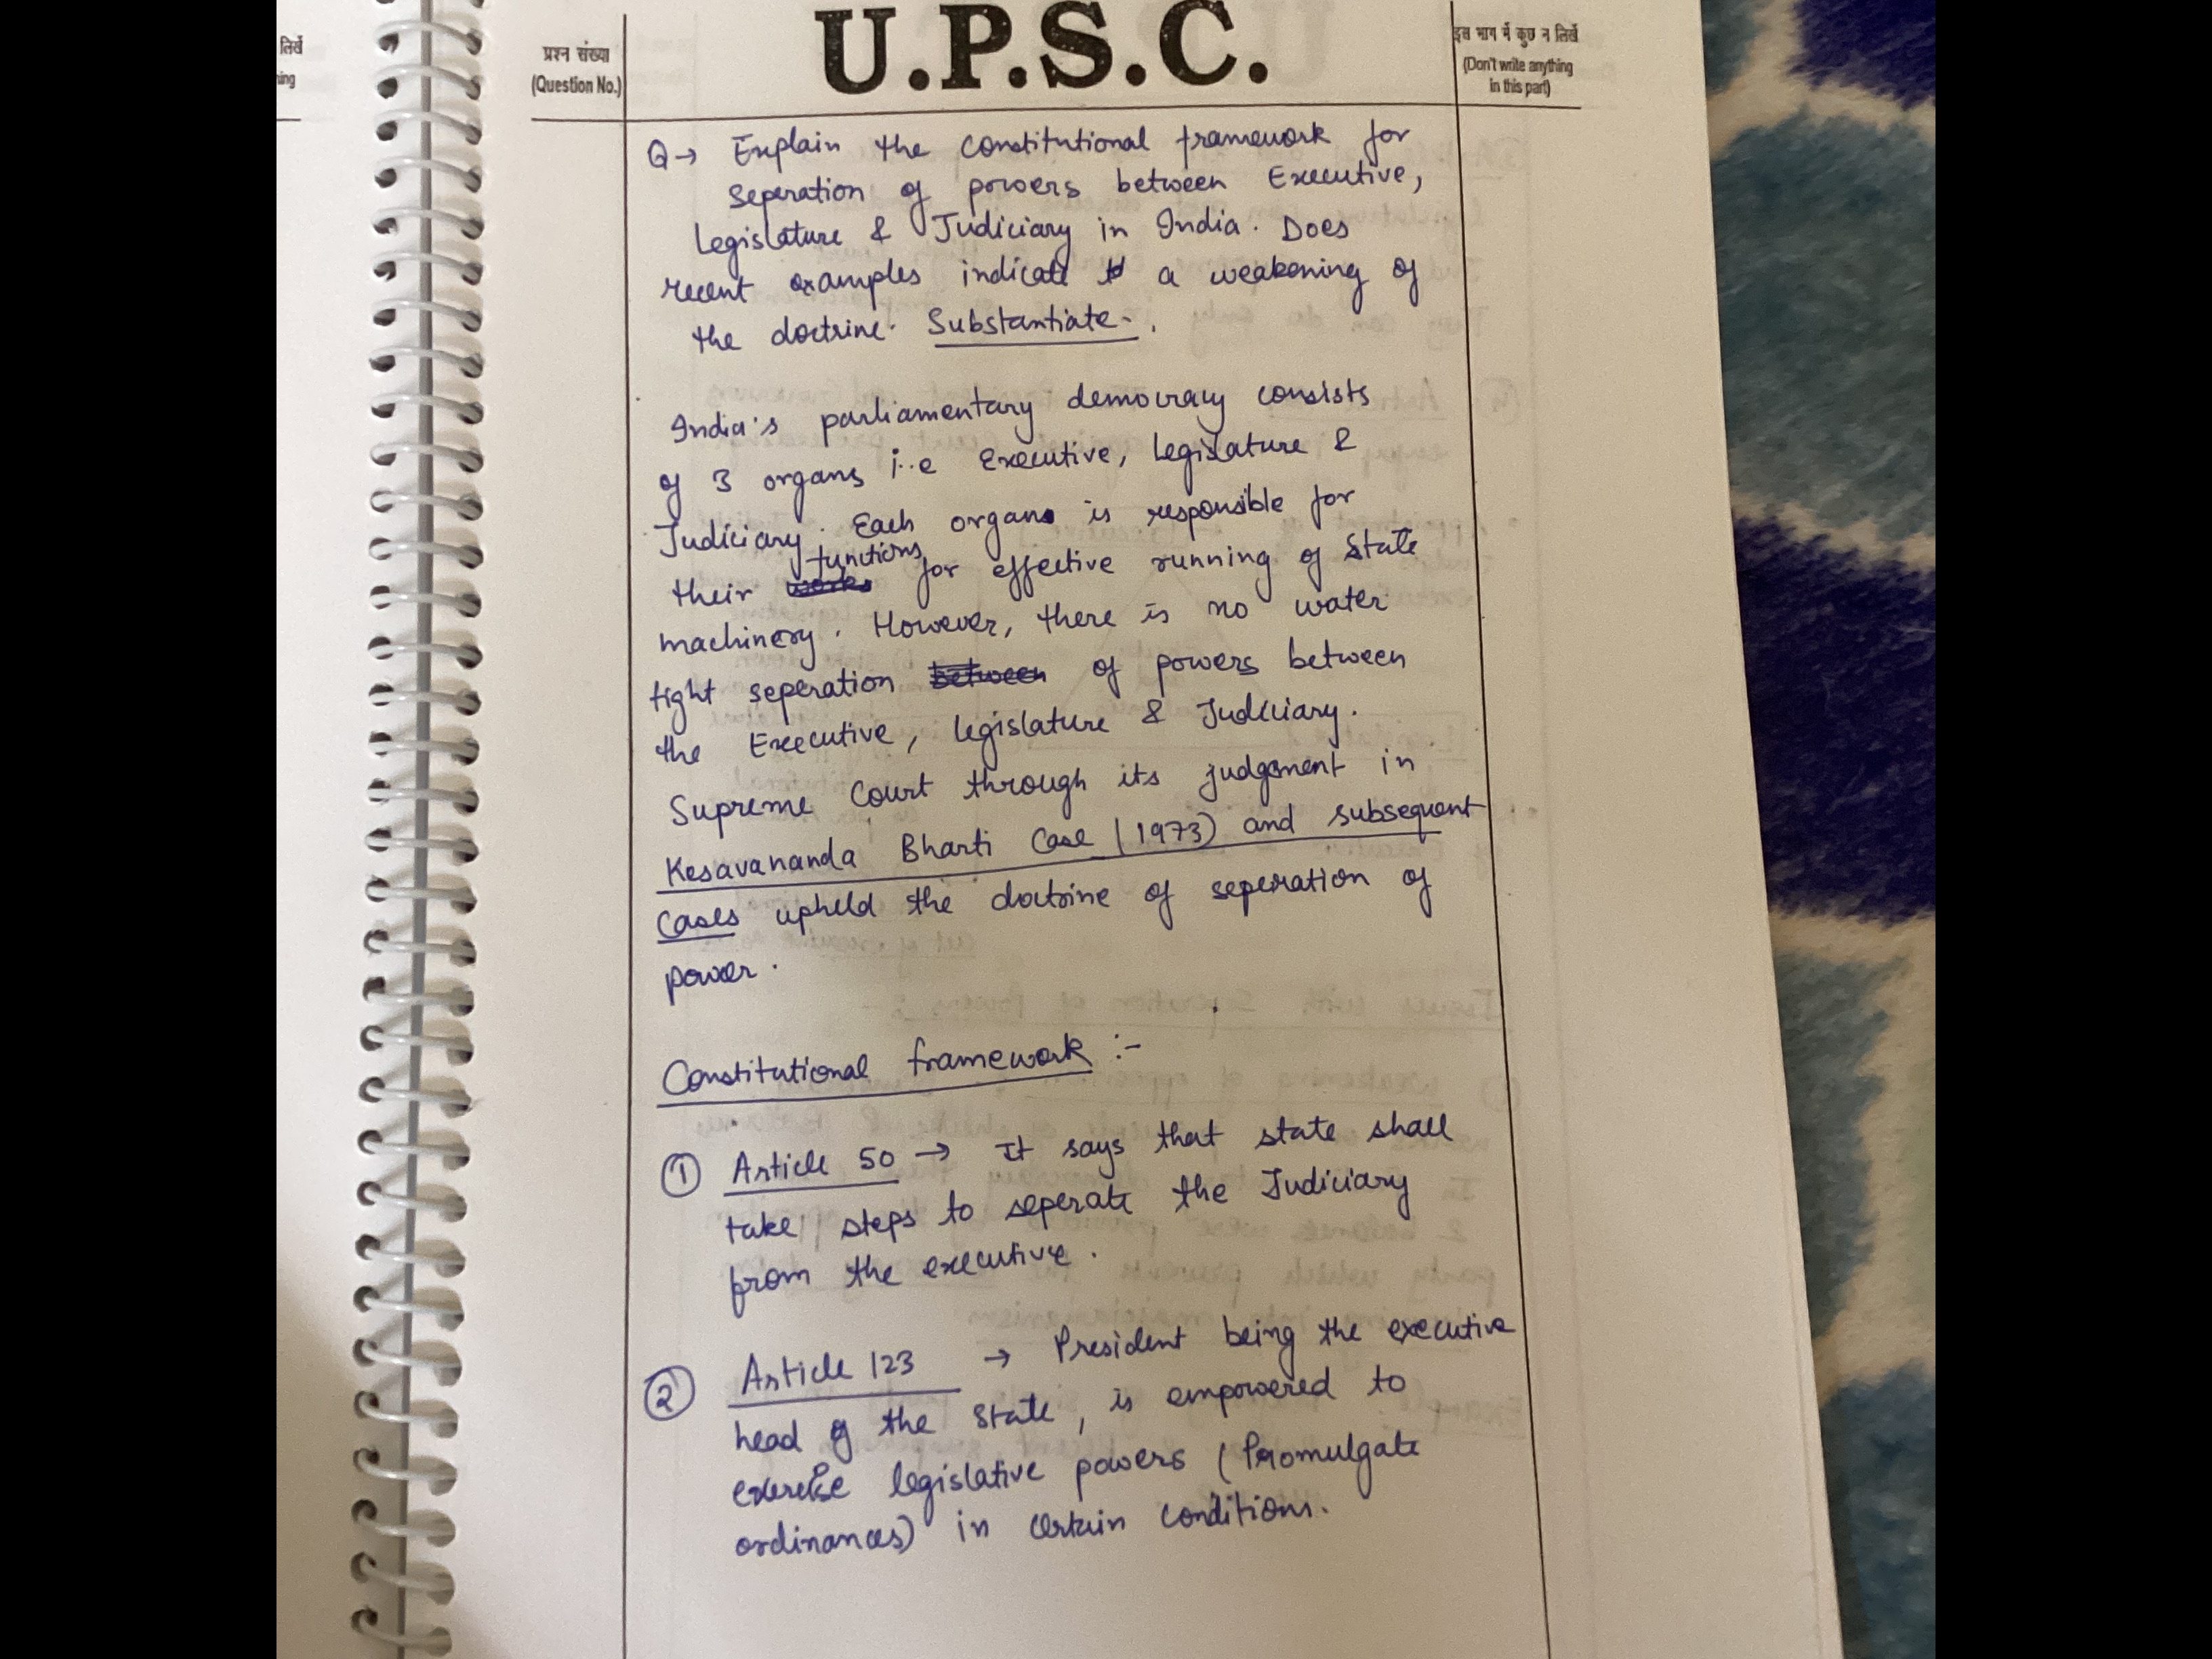 लिखें
ing
प्रश्न संख्या
(Question No.)
U.P.S.C.
इस भाग में कुछ न लिखें
(Don't write anything
in this part)
Q→ Explain the constitutional framework for
seperation of powers between Executive,
Legislature & Judiciary in India. Does
recent examples indicate a weakening of
the doctrine. Substantiate.
India's parliamentary democracy consists
of 3 organs i.e Executive, Legislature &
Judiciary. Each organ is responsible for
their works functions for effective running of State
machinery. However, there is no water
tight seperation between of powers between
the Executive, Legislature & Judiciary.
Supreme Court through its judgement in
Kesavananda Bharti Case (1973) and subsequent
cases upheld the doctrine of seperation of
power.
Constitutional framework :-
① Article 50 → It says that state shall
take steps to seperate the Judiciary
from the executive.
② Article 123 → President being the executive
head of the State, is empowered to
exercise legislative powers (Promulgate
ordinances) in certain conditions.